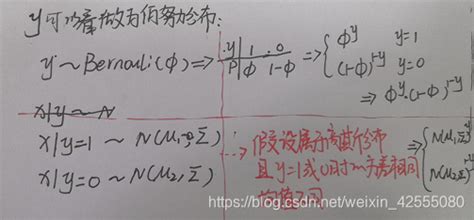 y可以看做为伯努力分布:
y ~ Bernouli(φ) ⇒ y | 1 0 ⇒ { φ^y y=1
P | φ 1-φ (1-φ)^{1-y} y=0
⇒ φ^y·(1-φ)^{1-y}
x|y ~ N
x|y=1 ~ N(μ₁, Σ)
x|y=0 ~ N(μ₂, Σ)
⇒ 假设属于高斯分布
且y=1或0时方差相同
均值不同
⇒ { N(μ₁, Σ)^y
N(μ₂, Σ)^{1-y}
https://blog.csdn.net/weixin_42555080